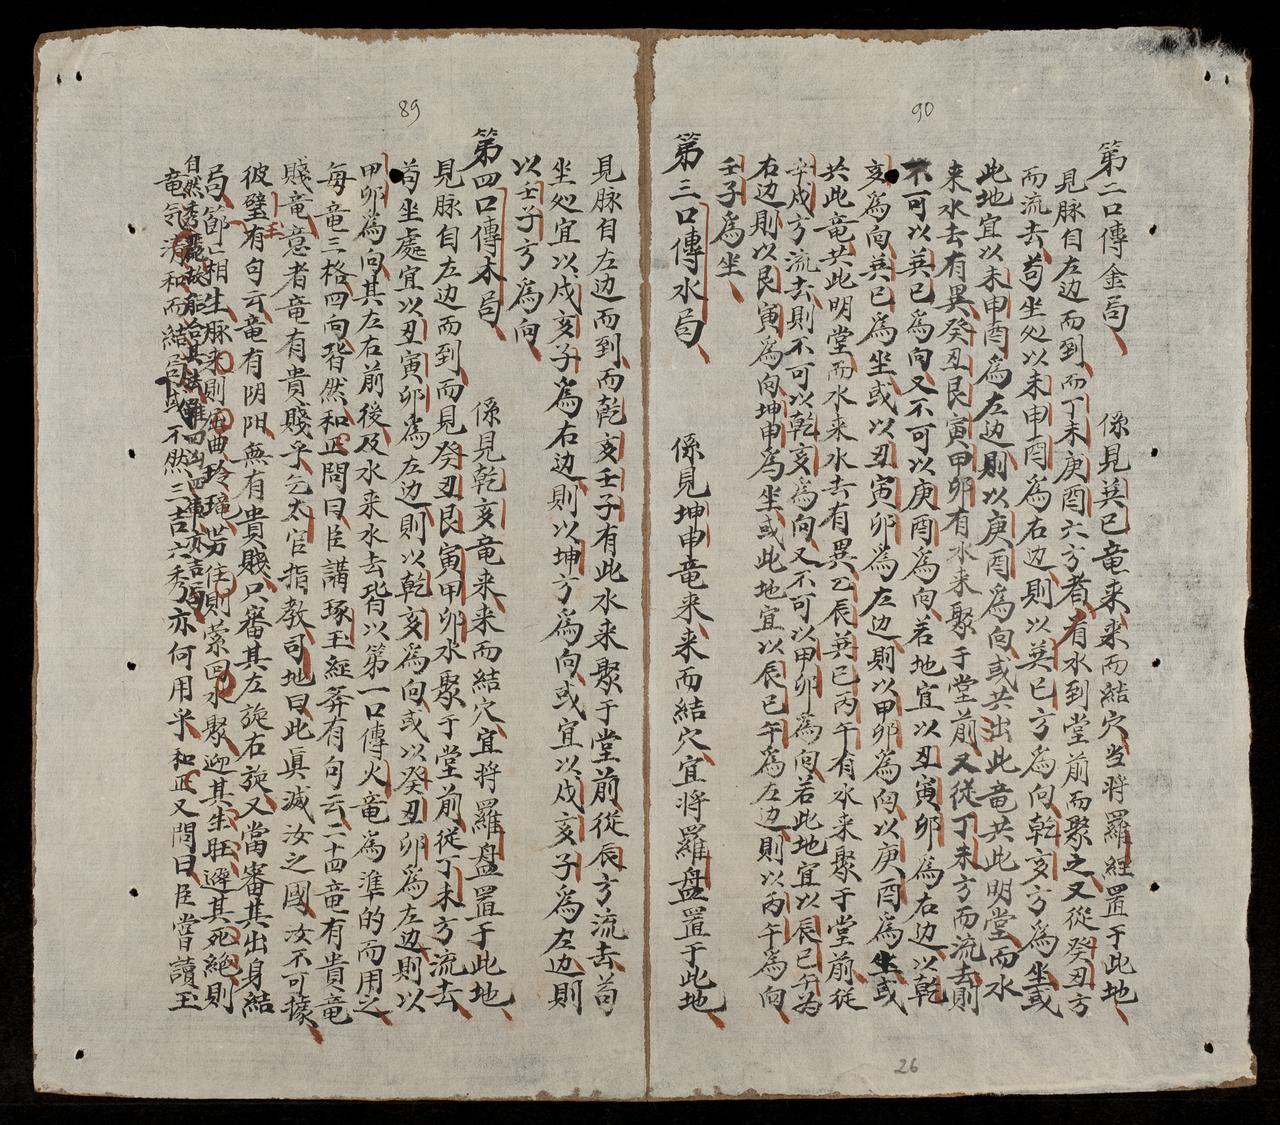 90
第二口傳金局　係見巽巳竜来来而結穴当将羅經置于此地
見脉自左边而到而丁未庚酉六方者有水到堂前而聚之又從癸丑方
而流去苟坐处以未申酉為右边則以巽巳方為向乾亥方為坐或
此地宜以未申酉為左边則以庚酉為向或共出此竜共此明堂而水
来水去有異癸丑艮寅甲卯有水来聚于堂前又從丁未方而流去則
不可以巽巳為向又不可以庚酉為向若地宜以丑寅卯為右边以乾
亥為向巽巳為坐或以丑寅卯為左边則以甲卯為向以庚酉為坐或
共此竜共此明堂而水来水去有異乙辰巽巳丙午有水来聚于堂前從
辛戌方流去則不可以乾亥為向又不可以甲卯為向若此地宜以辰巳午为
右边則以艮寅為向坤申為坐或此地宜以辰巳午為左边則以丙午為向
壬子為坐
第三口傳水局　係見坤申竜来来而結穴宜将羅盘置于此地
26
89
見脉自左边而到而乾亥壬子有此水来聚于堂前從辰方流去苟
坐处宜以戌亥子為右边則以坤方為向或宜以戌亥子為左边則
以壬子方為向
第四口傳木局　係見乾亥竜来来而結穴宜将羅盘置于此地
見脉自左边而到而見癸丑艮寅甲卯水聚于堂前從丁未方流去
苟坐處宜以丑寅卯為左边則以乾亥為向或以癸丑卯為左边則以
甲卯為向其左右前後及水来水去皆以第一口傳火竜為準的而用之
每竜三格四向皆然和正問曰臣講琢玉經莽有句云二十四竜有貴竜
賤竜意者竜有貴賤乎乞太官指教司地曰此真滅汝之國汝不可據
彼璧有句云竜有阴阳無有貴賤只審其左旋右旋又當審其出身結
玉
局節相生脉来則屈曲玲瓏芳住則縈回水聚迎其生旺避其死絕則
自然秀麗故能合其法雖四凶四庫亦吉酒
竜气清和而結局或不然三吉六秀亦何用乎和正又問曰臣嘗讀玉